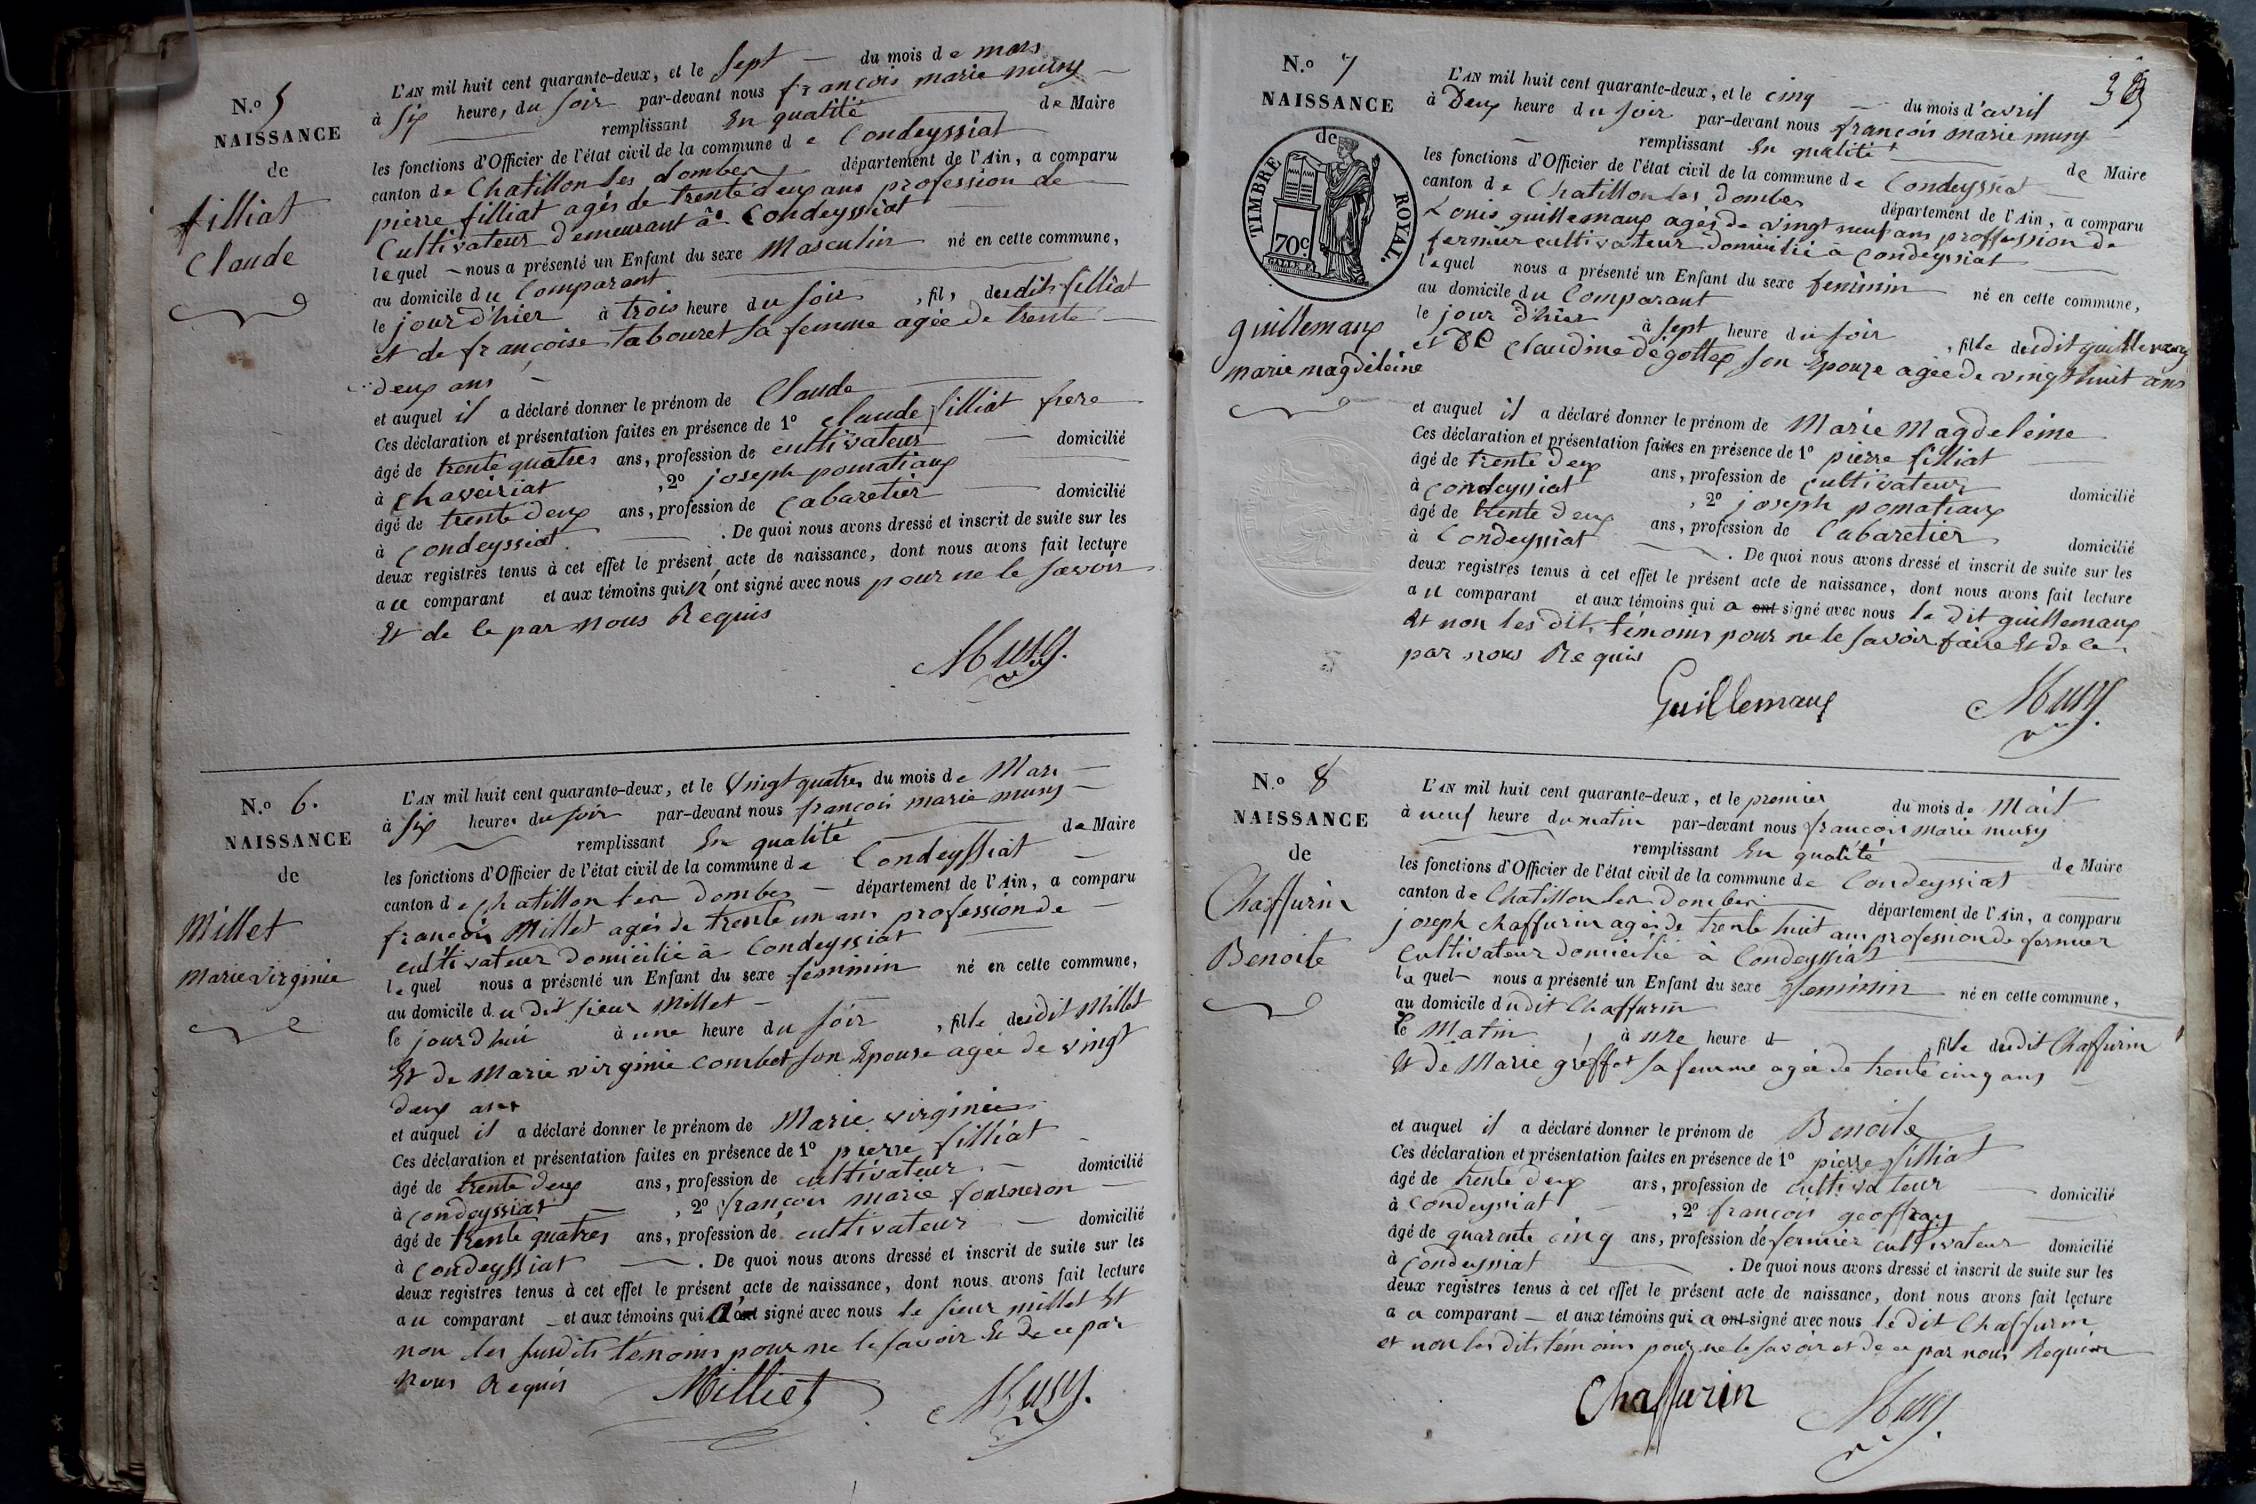 N.º 5
NAISSANCE
de
filliat
Claude
L'AN mil huit cent quarante-deux, et le sept du mois de mars
à six heure, du soir par-devant nous françois marie musy
remplissant En qualité de Maire
les fonctions d'Officier de l'état civil de la commune de Condeyssiat
canton de Chatillon les dombes département de l'Ain, a comparu
pierre filliat agés de trente deux ans profession de
Cultivateur Demeurant à Condeyssiat
lequel nous a présenté un Enfant du sexe Masculin né en cette commune,
au domicile du Comparant
le jour d'hier à trois heure du soir, fils desdit filliat
et de françoise tabouret sa femme agée de trente
deux ans
et auquel il a déclaré donner le prénom de Claude
Ces déclaration et présentation faites en présence de 1º Claude filliat frere
âgé de trente quatres ans, profession de cultivateur domicilié
à Chaveiriat, 2º joseph pomatiaux
âgé de trente deux ans, profession de Cabaretier domicilié
à Condeyssiat. De quoi nous avons dressé et inscrit de suite sur les
deux registres tenus à cet effet le présent acte de naissance, dont nous avons fait lecture
au comparant et aux témoins qui n'ont signé avec nous pour ne le savoir
Et de ce par nous Requis
Musy.
N.º 6.
NAISSANCE
de
Millet
Marie virginie
L'AN mil huit cent quarante-deux, et le Vingt quatres du mois de Mars
à six heures du soir par-devant nous françois marie musy
remplissant En qualité de Maire
les fonctions d'Officier de l'état civil de la commune de Condeyssiat
canton de Chatillon les Dombes département de l'Ain, a comparu
françois Millet agés de trente un ans profession de
cultivateur Domicilié à Condeyssiat
lequel nous a présenté un Enfant du sexe féminin né en cette commune,
au domicile du Dit sieur Millet
le jourd'hui à une heure du soir, fille desdit Millet
Et de Marie virginie Combet son Epouse agée de vingt
deux ans
et auquel il a déclaré donner le prénom de Marie virginie
Ces déclaration et présentation faites en présence de 1º pierre filliat
âgé de trente deux ans, profession de cultivateur domicilié
à Condeyssiat, 2º françois marie fourneron
âgé de trente quatres ans, profession de cultivateur domicilié
à Condeyssiat. De quoi nous avons dressé et inscrit de suite sur les
deux registres tenus à cet effet le présent acte de naissance, dont nous avons fait lecture
au comparant et aux témoins qui a ont signé avec nous le sieur millet Et
non les susdits témoins pour ne le savoir Et de ce par
nous Requis
Milliet
Musy.
N.º 7
NAISSANCE
de
TIMBRE ROYAL.
70c.
guillemaux
marie magdeleine
L'AN mil huit cent quarante-deux, et le cinq du mois d'avril
à Deux heure du soir par-devant nous françois marie musy
remplissant En qualité de Maire
les fonctions d'Officier de l'état civil de la commune de Condeyssiat
canton de Chatillon les dombes département de l'Ain, a comparu
Louis guillemaux agés de vingt neuf ans proffession de
fermier cultivateur domicilié à Condeyssiat
lequel nous a présenté un Enfant du sexe feminin né en cette commune,
au domicile du Comparant
le jour d'hier à sept heure du soir, fille desdit guillemaux
et DE Claudine dégottex son Epouze agée de vingt huit ans
et auquel il a déclaré donner le prénom de Marie Magdeleine
Ces déclaration et présentation faites en présence de 1º pierre filliat
âgé de trente deux ans, profession de cultivateur domicilié
à Condeyssiat, 2º joseph pomatiaux
âgé de trente deux ans, profession de Cabaretier domicilié
à Condeyssiat. De quoi nous avons dressé et inscrit de suite sur les
deux registres tenus à cet effet le présent acte de naissance, dont nous avons fait lecture
au comparant et aux témoins qui a ont signé avec nous le dit guillemaux
Et non les dits témoins pour ne le savoir faire Et de ce
par nous Requis
Guillemaux
Musy.
N.º 8
NAISSANCE
de
Chaffurin
Benoite
L'AN mil huit cent quarante-deux, et le premier du mois de Mait
à neuf heure du matin par-devant nous françois marie musy
remplissant En qualité de Maire
les fonctions d'Officier de l'état civil de la commune de Condeyssiat
canton de Chatillon les Dombes département de l'Ain, a comparu
joseph chaffurin agés de trente huit ans profession de fermier
Cultivateur domicilié à Condeyssiat
lequel nous a présenté un Enfant du sexe feminin né en cette commune,
au domicile dudit Chaffurin
le Matin à une heure d, fille desdit Chaffurin
Et de Marie greffet sa femme agée de trente cinq ans
et auquel il a déclaré donner le prénom de Benoite
Ces déclaration et présentation faites en présence de 1º pierre filliat
âgé de trente deux ans, profession de cultivateur domicilié
à Condeyssiat, 2º françois geoffray
âgé de quarante cinq ans, profession de fermier cultivateur domicilié
à Condeyssiat. De quoi nous avons dressé et inscrit de suite sur les
deux registres tenus à cet effet le présent acte de naissance, dont nous avons fait lecture
a a comparant et aux témoins qui a ont signé avec nous le dit Chaffurin
et non les dits témoins pour ne le savoir et de ce par nous Requis
Chaffurin
Musy.